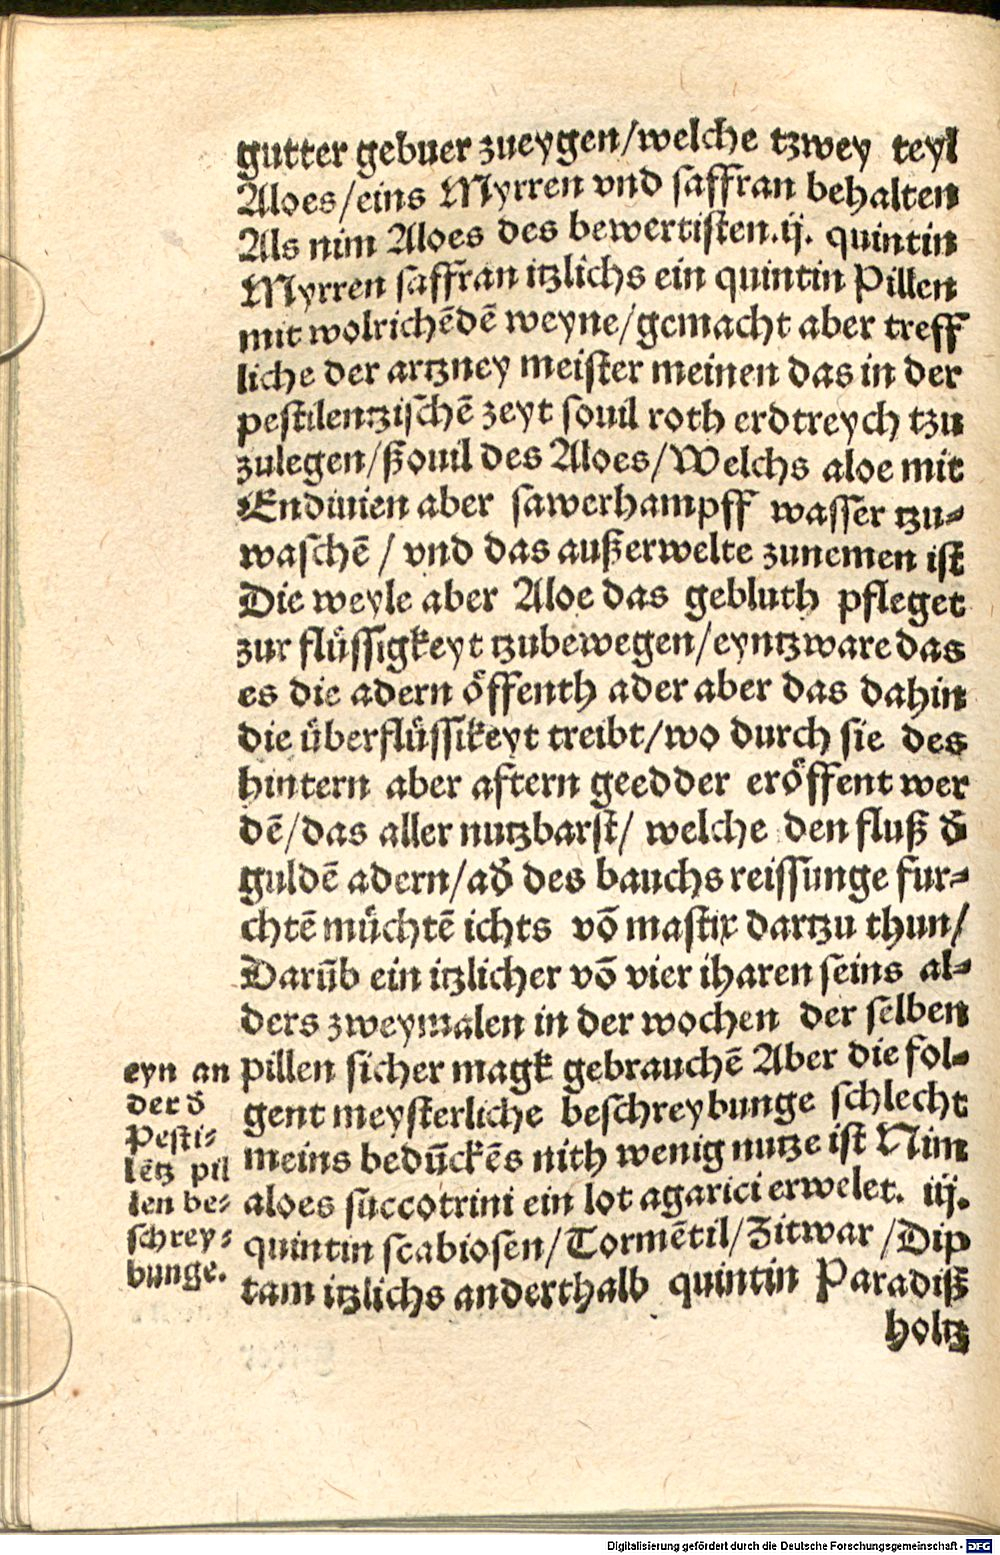 gutter gebuer zueygen/welche tzwey teyl
Aloes/eins Myrren vnd saffran behalten
Als nim Aloes des bewertisten.ij. quintin
Myrren saffran itzlichs ein quintin Pillen
mit wolrichēdē weyne/gemacht aber treff
liche der artzney meister meinen das in der
pestilentzischē zeyt souil roth erdtreych tzu
zulegen/ßouil des Aloes/Welchs aloe mit
Endiuien aber sawerhampff wasser tzu-
waschē / vnd das außerwelte zunemen ist
Die weyle aber Aloe das gebluth pfleget
zur flüssigkeyt tzubewegen/eyntzware das
es die adern öffenth ader aber das dahin
die überflüssikeyt treibt/wo durch sie des
hintern aber aftern geedder eröffent wer
dē/das aller nutzbarst/ welche den fluß d̄
guldē adern/ad̄ des bauchs reissunge fur-
chtē müchtē ichts vō mastix dartzu thun/
Darūb ein itzlicher vō vier iharen seins al-
ders zweymalen in der wochen der selben
pillen sicher magk gebrauchē Aber die fol-
gent meysterliche beschreybunge schlecht
meins bedūckēs nith wenig nutze ist Nim
aloes succotrini ein lot agarici erwelet. iij.
quintin scabiosen/Tormētil/Zitwar /Dip
tam itzlichs anderthalb quintin Paradiß
holtz
eyn an
der d̄
Pesti-
lētz pil
len be-
schrey-
bunge.
Digitalisierung gefördert durch die Deutsche Forschungsgemeinschaft - DFG